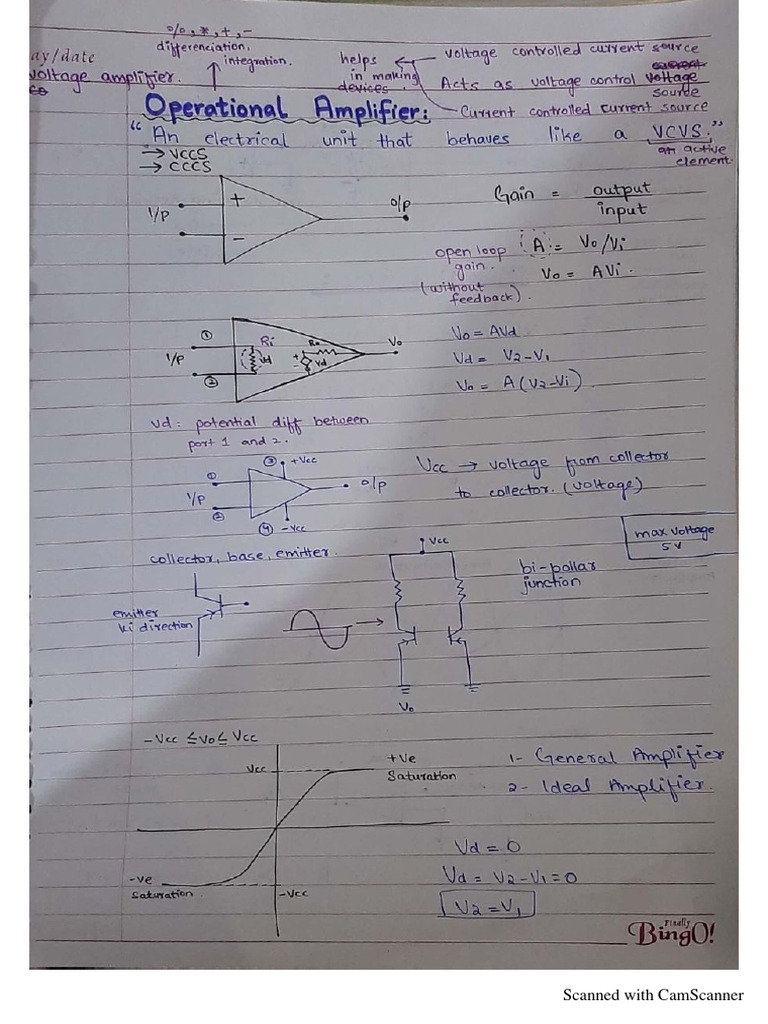 %, *, +, -
differenciation,
integration.
ay/date
voltage amplifier.
helps
in making
devices.
voltage controlled current source
Acts as voltage control voltage
source
Current controlled current source
Operational Amplifier:
"An electrical unit that behaves like a VCVS."
an active
element.
→ VCCS
→ CCCS
I/P
+
-
O/P
Gain = output
input
open loop
gain.
(without
feedback).
A = Vo/Vi
Vo = AVi.
①
I/P
②
Ri
Vd
Ro
+
-
Vd
Vo
Vo = AVd
Vd = V2-V1
Vo = A(V2-Vi)
vd: potential diff between
port 1 and 2.
①
I/P
②
③ +Vcc
④ -Vcc
O/P
Vcc → voltage from collector
to collector. (voltage)
max voltage
5V
collector, base, emitter.
Vcc
bi-pollar
junction
emitter
ki direction
Vo
-Vcc ≤ Vo ≤ Vcc
Vcc
+Ve
Saturation
-ve
Saturation
-Vcc
1- General Amplifier
2- Ideal Amplifier.
Vd = 0
Vd = V2-V1=0
V2=V1
Finally
BingO!
Scanned with CamScanner